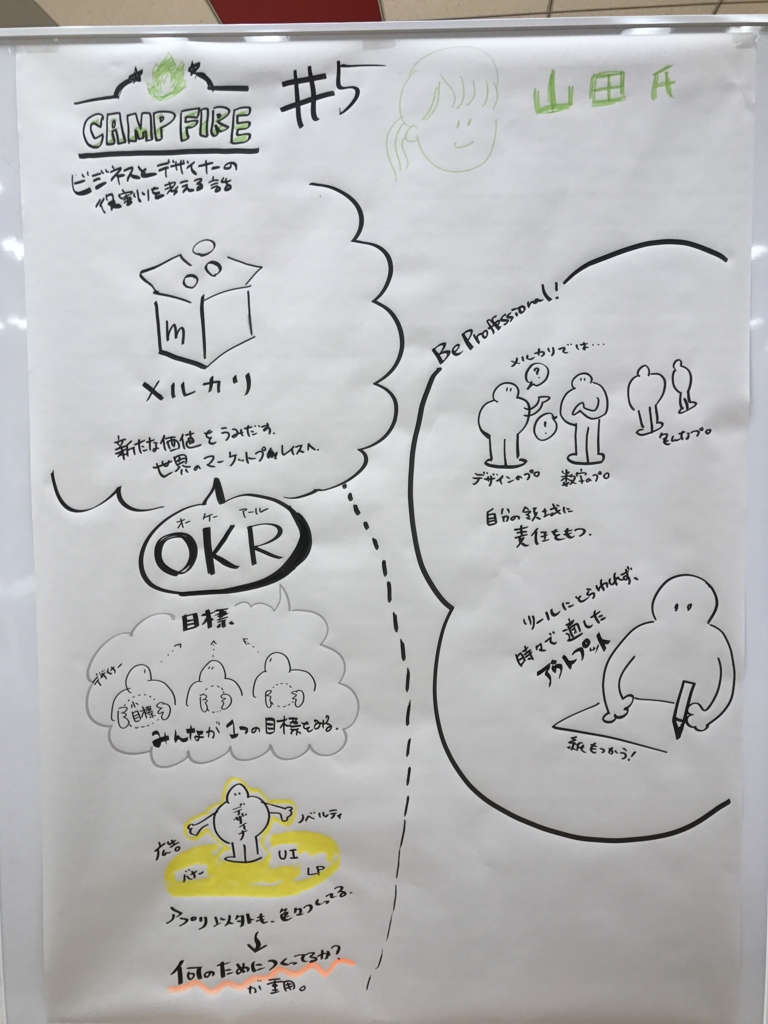 CAMPFIRE #5
山田氏
ビジネスとデザイナーの
役割りを考える話
m
メルカリ
新たな価値をうみだす、
世界のマーケットプレイスへ。
オー ケー アール
OKR
目標
デザイナー
小目標
みんなが1つの目標をみる。
デザイナ
ノベルティ
広告
バナー
UI
LP
アプリ以外も、色々つくってる。
↓
何のためにつくってるか?
が重用。
Be Proffessional!
メルカリでは…
?
!
デザインのプロ
数字のプロ
色んなプロ
自分の領域に
責任をもつ。
ツールにとらわれず、
時々で適した
アウトプット
紙もつかう!